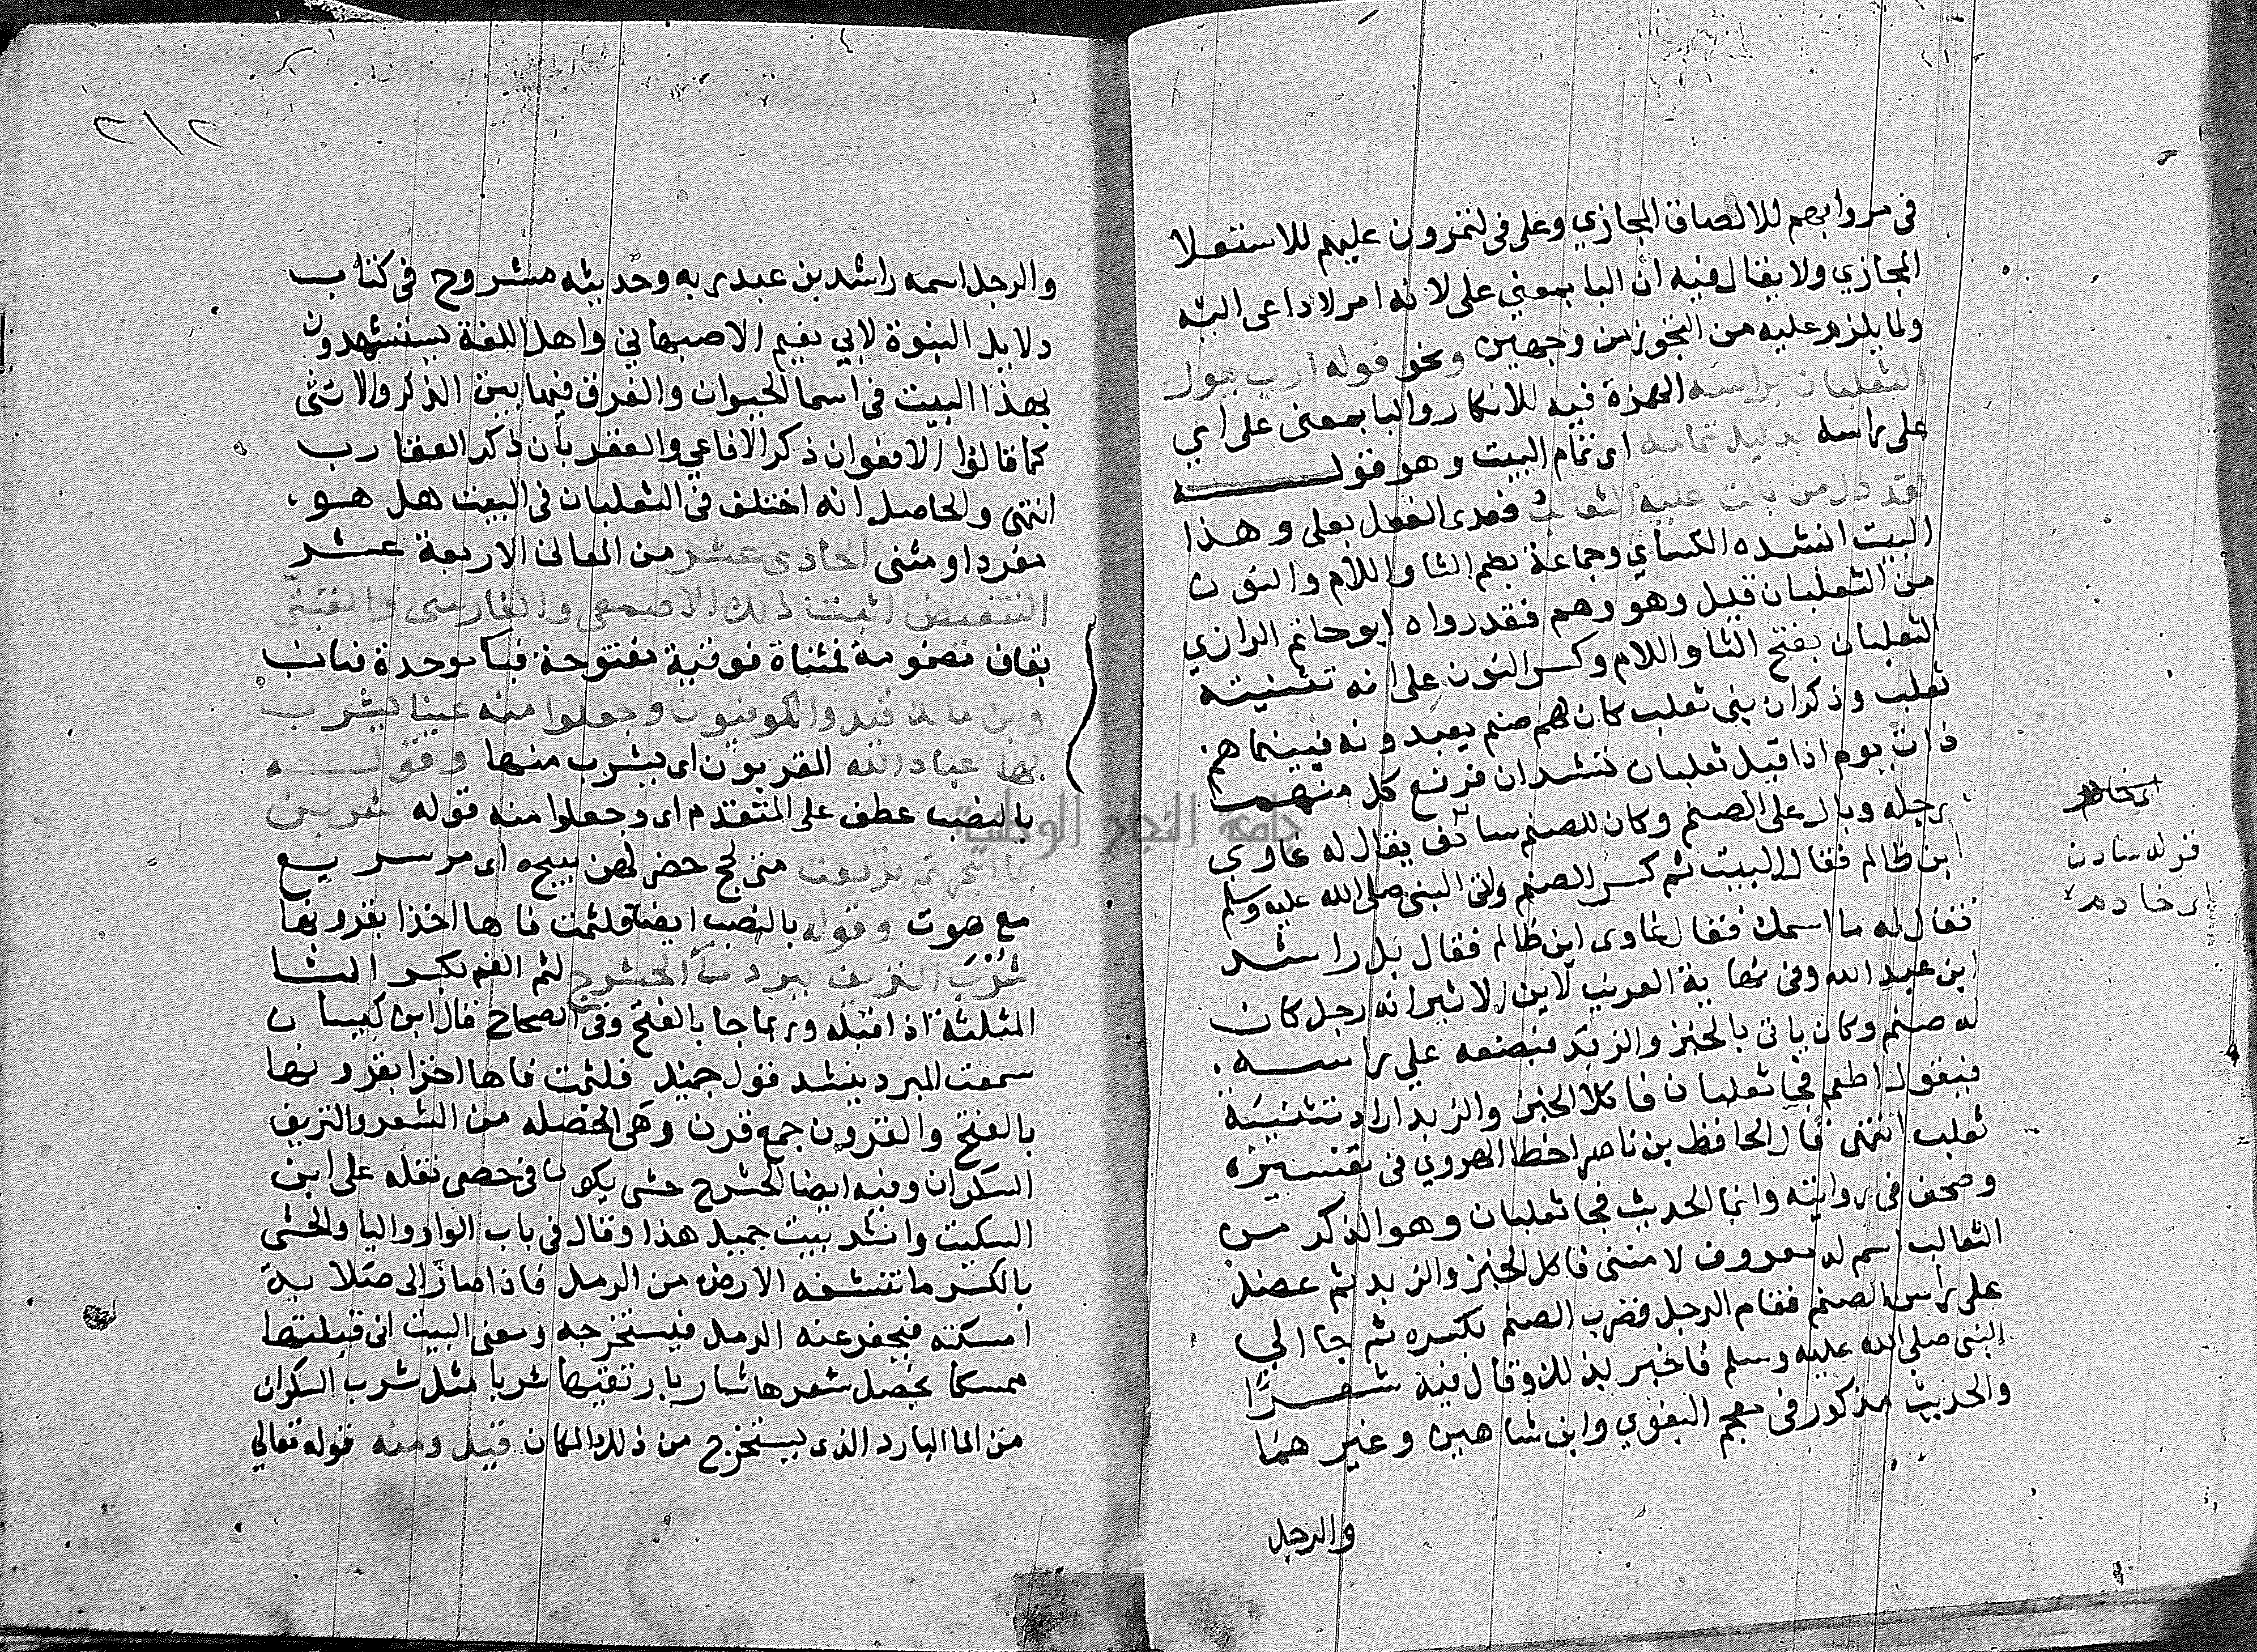 في مروا بهم للالصاق المجازي وعلى في لتمرون عليهم للاستعلا
المجازي ولا يقال فيه ان البا بمعني على لانه امر لا داعى اليه
ولما يلزم عليه من التجوز من وجهين ونحو قوله ارب يبول
الثعلبان براسه الهمزة فيه للانكار والبا بمعنى على اي
على راسه بدليل تمامه اى تمام البيت وهو قوله
لقد ذل من بالت عليه الثعالب فعدى الفعل بعلى وهذا
البيت انشده الكساي وجماعة بضم الثا واللام والنون
من الثعلبان قيل وهو وهم فقد رواه ابو حاتم الرازي
الثعلبان بفتح الثا واللام وكسر النون على انه تثنيته
ثعلب وذكر ان بنى ثعلب كان لهم صنم يعبدونه فبينما هم
ذات يوم اذا قبل ثعلبان تشتدان فرفع كل منهما
رجله وبال على الصنم وكان للصنم سادن يقال له غاوي
ابن ظالم فقال البيت ثم كسر الصنم واتى النبي صلى الله عليه وسلم
فقال له ما اسمك فقال غاوى ابن ظالم فقال بل راشد
ابن عبد الله وفى نهاية الغريب لابن الاثير انه رجل كان
له صنم وكان ياتى بالخبز والزبد فيضعه علي راسه
فيقول اطعم فجا ثعلبان فاكلا الخبز والزبد اراد تثنية
ثعلب انتهى قال الحافظ بن ناصر اخطا الهروي في تفسيره
وصحف في روايته وانما الحديث فجا ثعلبان وهو الذكر من
الثعالب اسم له معروف لا مثنى فاكل الخبز والزبد ثم عصل
على راس الصنم فقام الرجل فضرب الصنم بكسره ثم جا الي
النبي صلى الله عليه وسلم فاخبر بذلك وقال فيه شعرا
والحديث مذكور في معجم البغوي وابن شاهين وغيرهما
والرجل
قوله سادن
اي خادم
٢١٢
والرجل اسمه راشد بن عبد ربه وحديثه مشروح في كتاب
دلايل النبوة لابي نعيم الاصبهاني واهل اللغة يستشهدون
بهذا البيت في اسما الحيوان والفرق فيها بين الذكر والانثى
كما قالوا الافعوان ذكر الافاعي والعقربان ذكر العقارب
انتهى والحاصل انه اختلف في الثعلبان في البيت هل هو
مفرد او مثنى الحادى عشر من المعانى الاربعة عشر
التبعيض اثبت ذلك الاصمعى والفارسى والقتبي
بقاف مضمومة فمثناة فوقية مفتوحة فبا موحدة فيائب
وابن مالك قيل والكوفيون وجعلوا منه عينا يشرب
بها عباد الله المقربون اى يشرب منها وقوله
بالنصب عطف على المتقدم اى وجعلوا منه قوله شربن
بما البحر ثم ترفعت متى لجج خضر لهن نييج اى مر سريع
مع صوت وقوله بالنصب ايضا فلثمت فاها اخذا بقرونها
شرب النزيف ببرد ما الحشرج لثم الفم بكسر الثا
المثلثة اذا قبله وربما جا بالفتح وفي الصحاح قال ابن كيسان
سمعت المبرد ينشد قول جميل فلثمت فاها اخذا بقرونها
بالفتح والقرون جمع قرن وهى الخصله من الشعر والنزيف
السكران وفيه ايضا الحشرج حسى يكون في حصى نقله على ابن
السكيت وانشد بيت جميل هذا وقال في باب الواو واليا والحسى
بالكسر ما تنشفه الارض من الرمل فاذا صار الى صلابة
امسكته فيحفر عنه الرمل فيستخرجه ومعنى البيت انى قبلتها
ممسكا بخصل شعرها شاربا ريقتها شربا مثل شرب السكران
من الما البارد الذى يستخرج من ذلك المكان قيل ومنه قوله تعالي
جامعة النجاح الوطنية